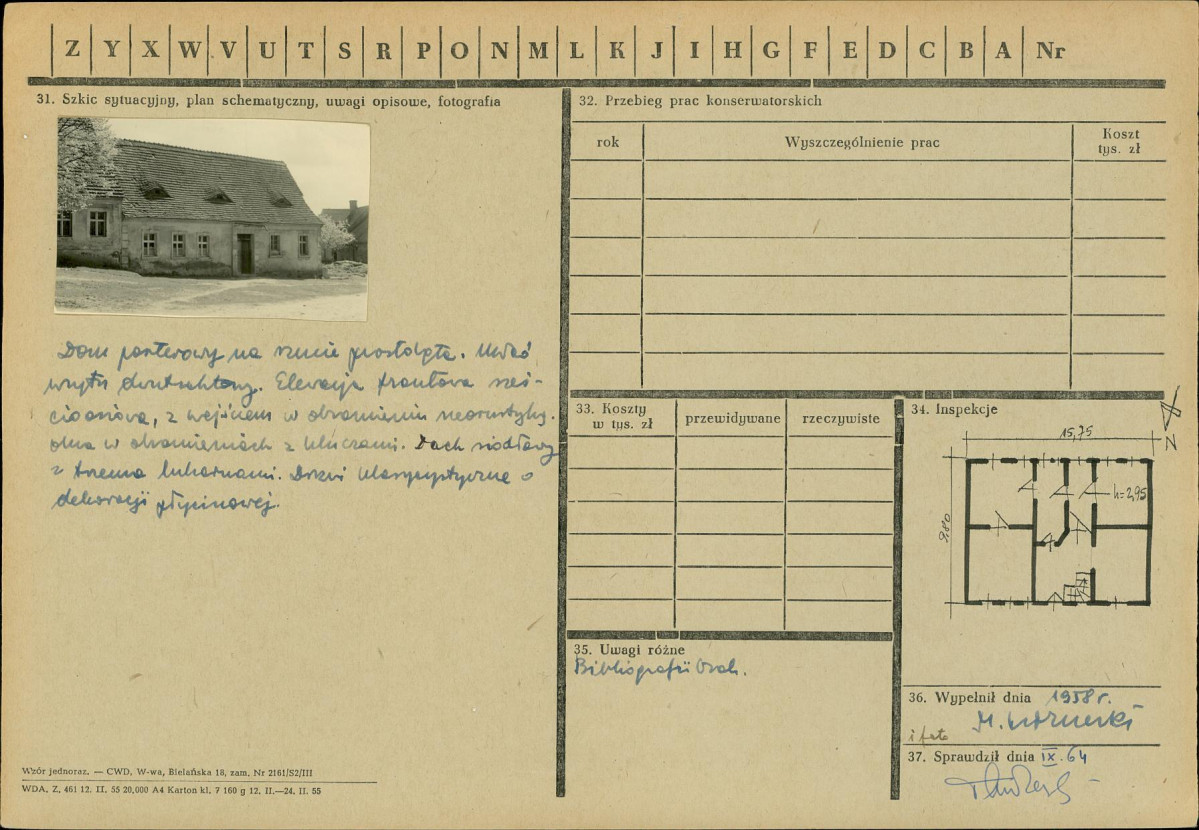 Z Y X W V U T S R P O N M L K J I H G F E D C B A Nr
31. Szkic sytuacyjny, plan schematyczny, uwagi opisowe, fotografia
Dom parterowy na rzucie prostokąta. Układ
wnętrz dwutraktowy. Elewacja frontowa sześ-
cioosiowa, z wejściem w obramieniu
okna w obramieniach z kluczami. Dach siodłowy
z trzema lukarnami. Drzwi klasycystyczne o
dekoracji płycinowej.
Wzór jednoraz. — CWD, W-wa, Bielańska 18, zam. Nr 2161/S2/III
WDA. Z. 461 12. II. 55 20.000 A4 Karton kl. 7 160 g 12. II.—24. II. 55
32. Przebieg prac konserwatorskich
rok Wyszczególnienie prac Koszt
tys. zł
33. Koszty
w tys. zł przewidywane rzeczywiste
34. Inspekcje
N
15,75
h=2,95
9,80
35. Uwagi różne
Bibliografii brak.
36. Wypełnił dnia 1958 r.
i foto M.
37. Sprawdził dnia IX. 64